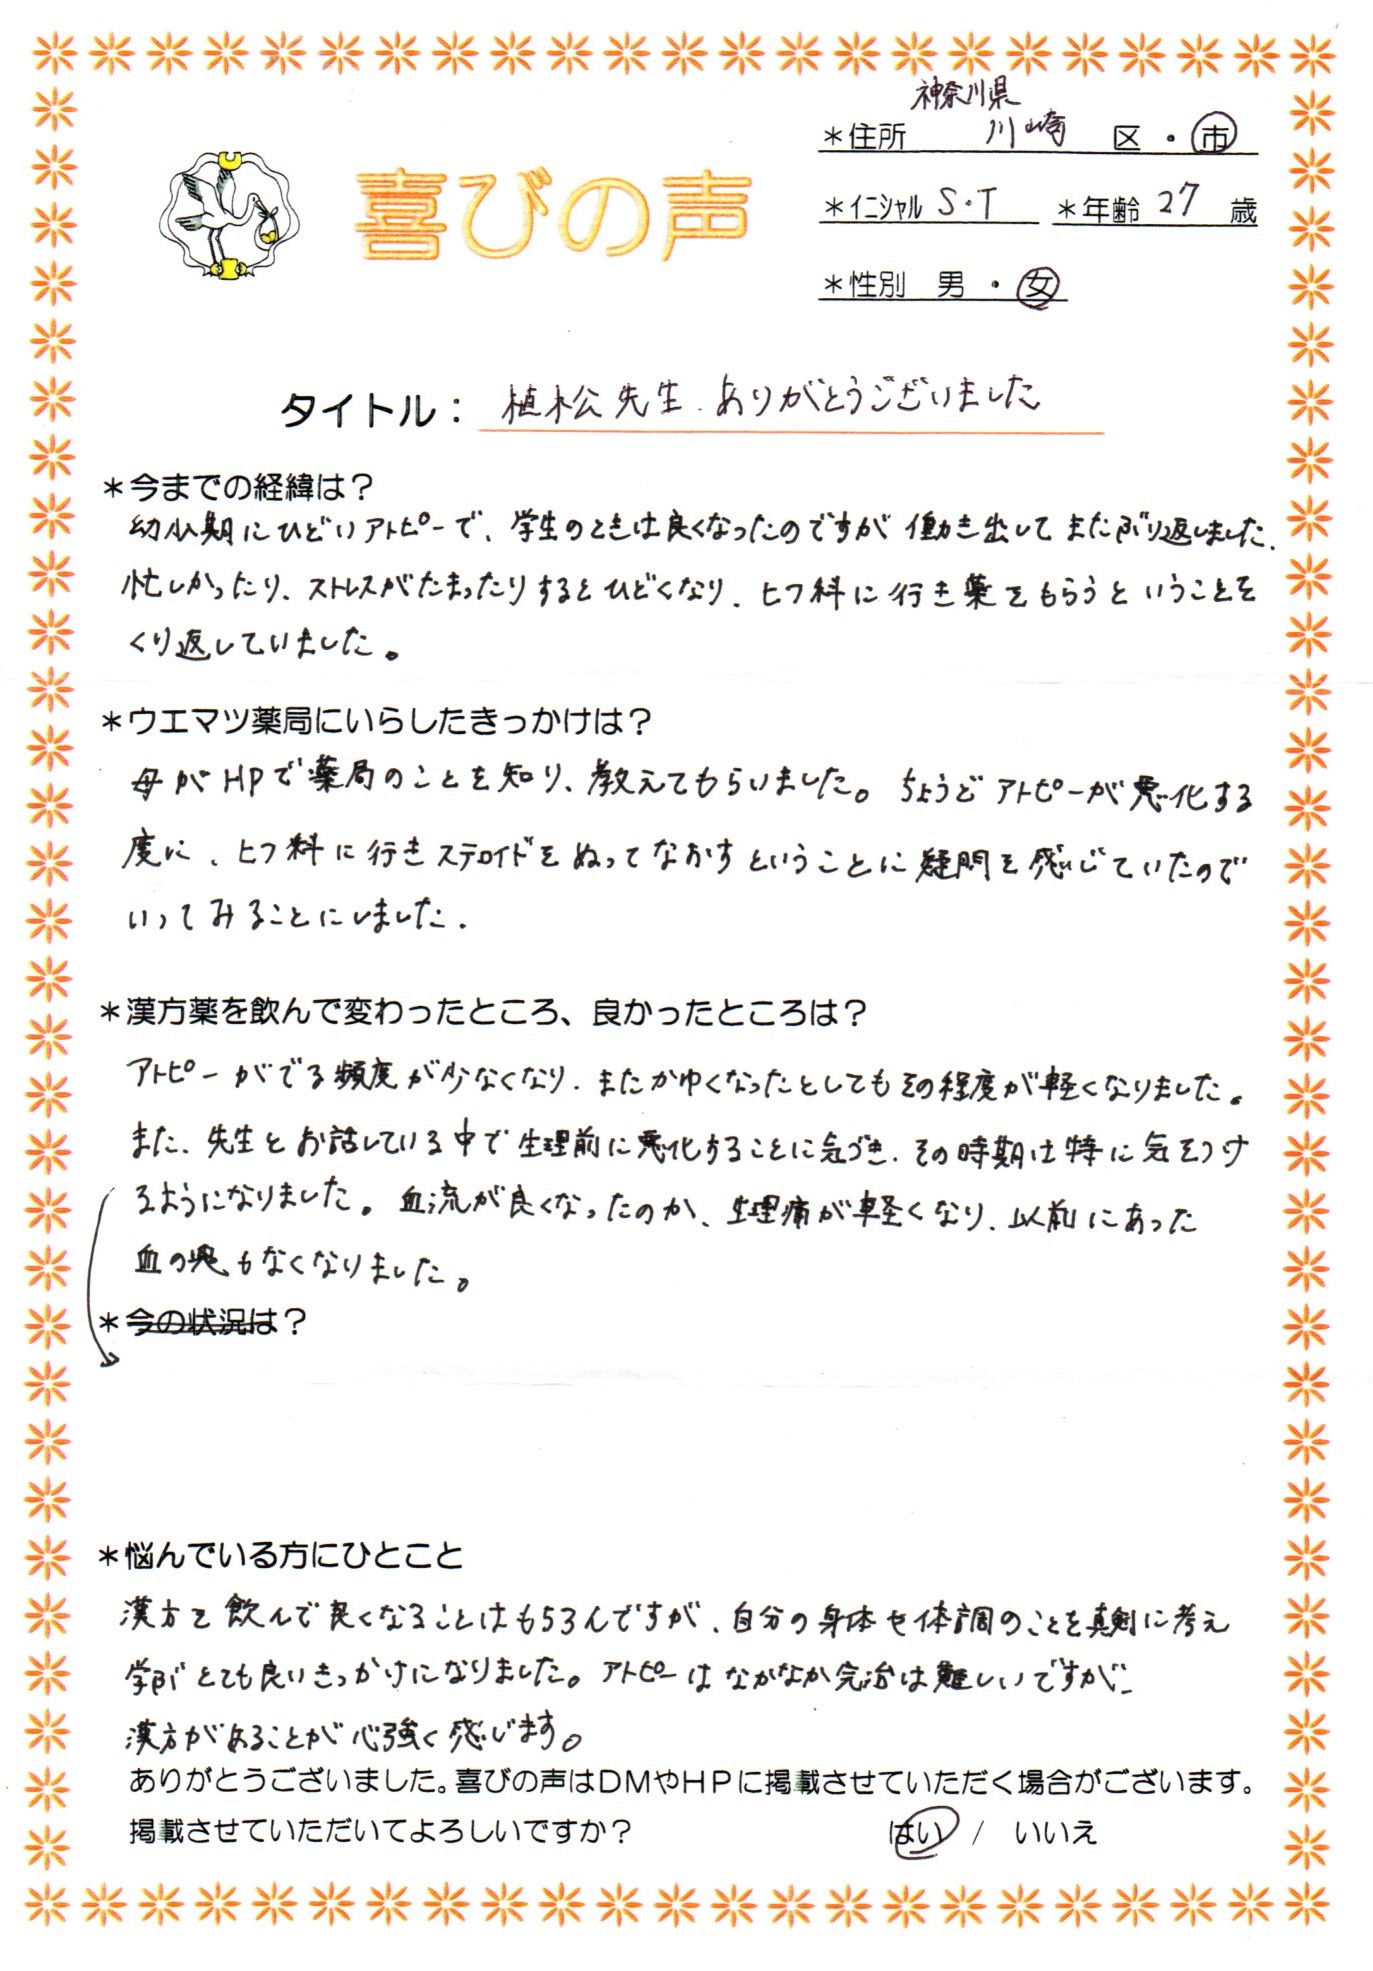 神奈川県
＊住所 川崎 区・市
喜びの声
＊イニシャル S・T ＊年齢 27 歳
＊性別 男・女
タイトル： 植松先生、ありがとうございました
＊今までの経緯は？
幼少期にひどいアトピーで、学生のときは良くなったのですが働き出してまたぶり返しました。
忙しかったり、ストレスがたまったりするとひどくなり、ヒフ科に行き薬をもらうということを
くり返していました。
＊ウエマツ薬局にいらしたきっかけは？
母がHPで薬局のことを知り、教えてもらいました。ちょうどアトピーが悪化する
度に、ヒフ科に行きステロイドをぬってなおすということに疑問を感じていたので
いってみることにしました。
＊漢方薬を飲んで変わったところ、良かったところは？
アトピーがでる頻度が少なくなり、またかゆくなったとしてもその程度が軽くなりました。
また、先生とお話している中で生理前に悪化することに気づき、その時期は特に気をつけ
るようになりました。血流が良くなったのか、生理痛が軽くなり、以前にあった
血の塊もなくなりました。
＊今の状況は？
＊悩んでいる方にひとこと
漢方を飲んで良くなることはもちろんですが、自分の身体や体調のことを真剣に考え
学ぶとても良いきっかけになりました。アトピーはなかなか完治は難しいですが、
漢方があることが心強く感じます。
ありがとうございました。喜びの声はDMやHPに掲載させていただく場合がございます。
掲載させていただいてよろしいですか？ はい / いいえ